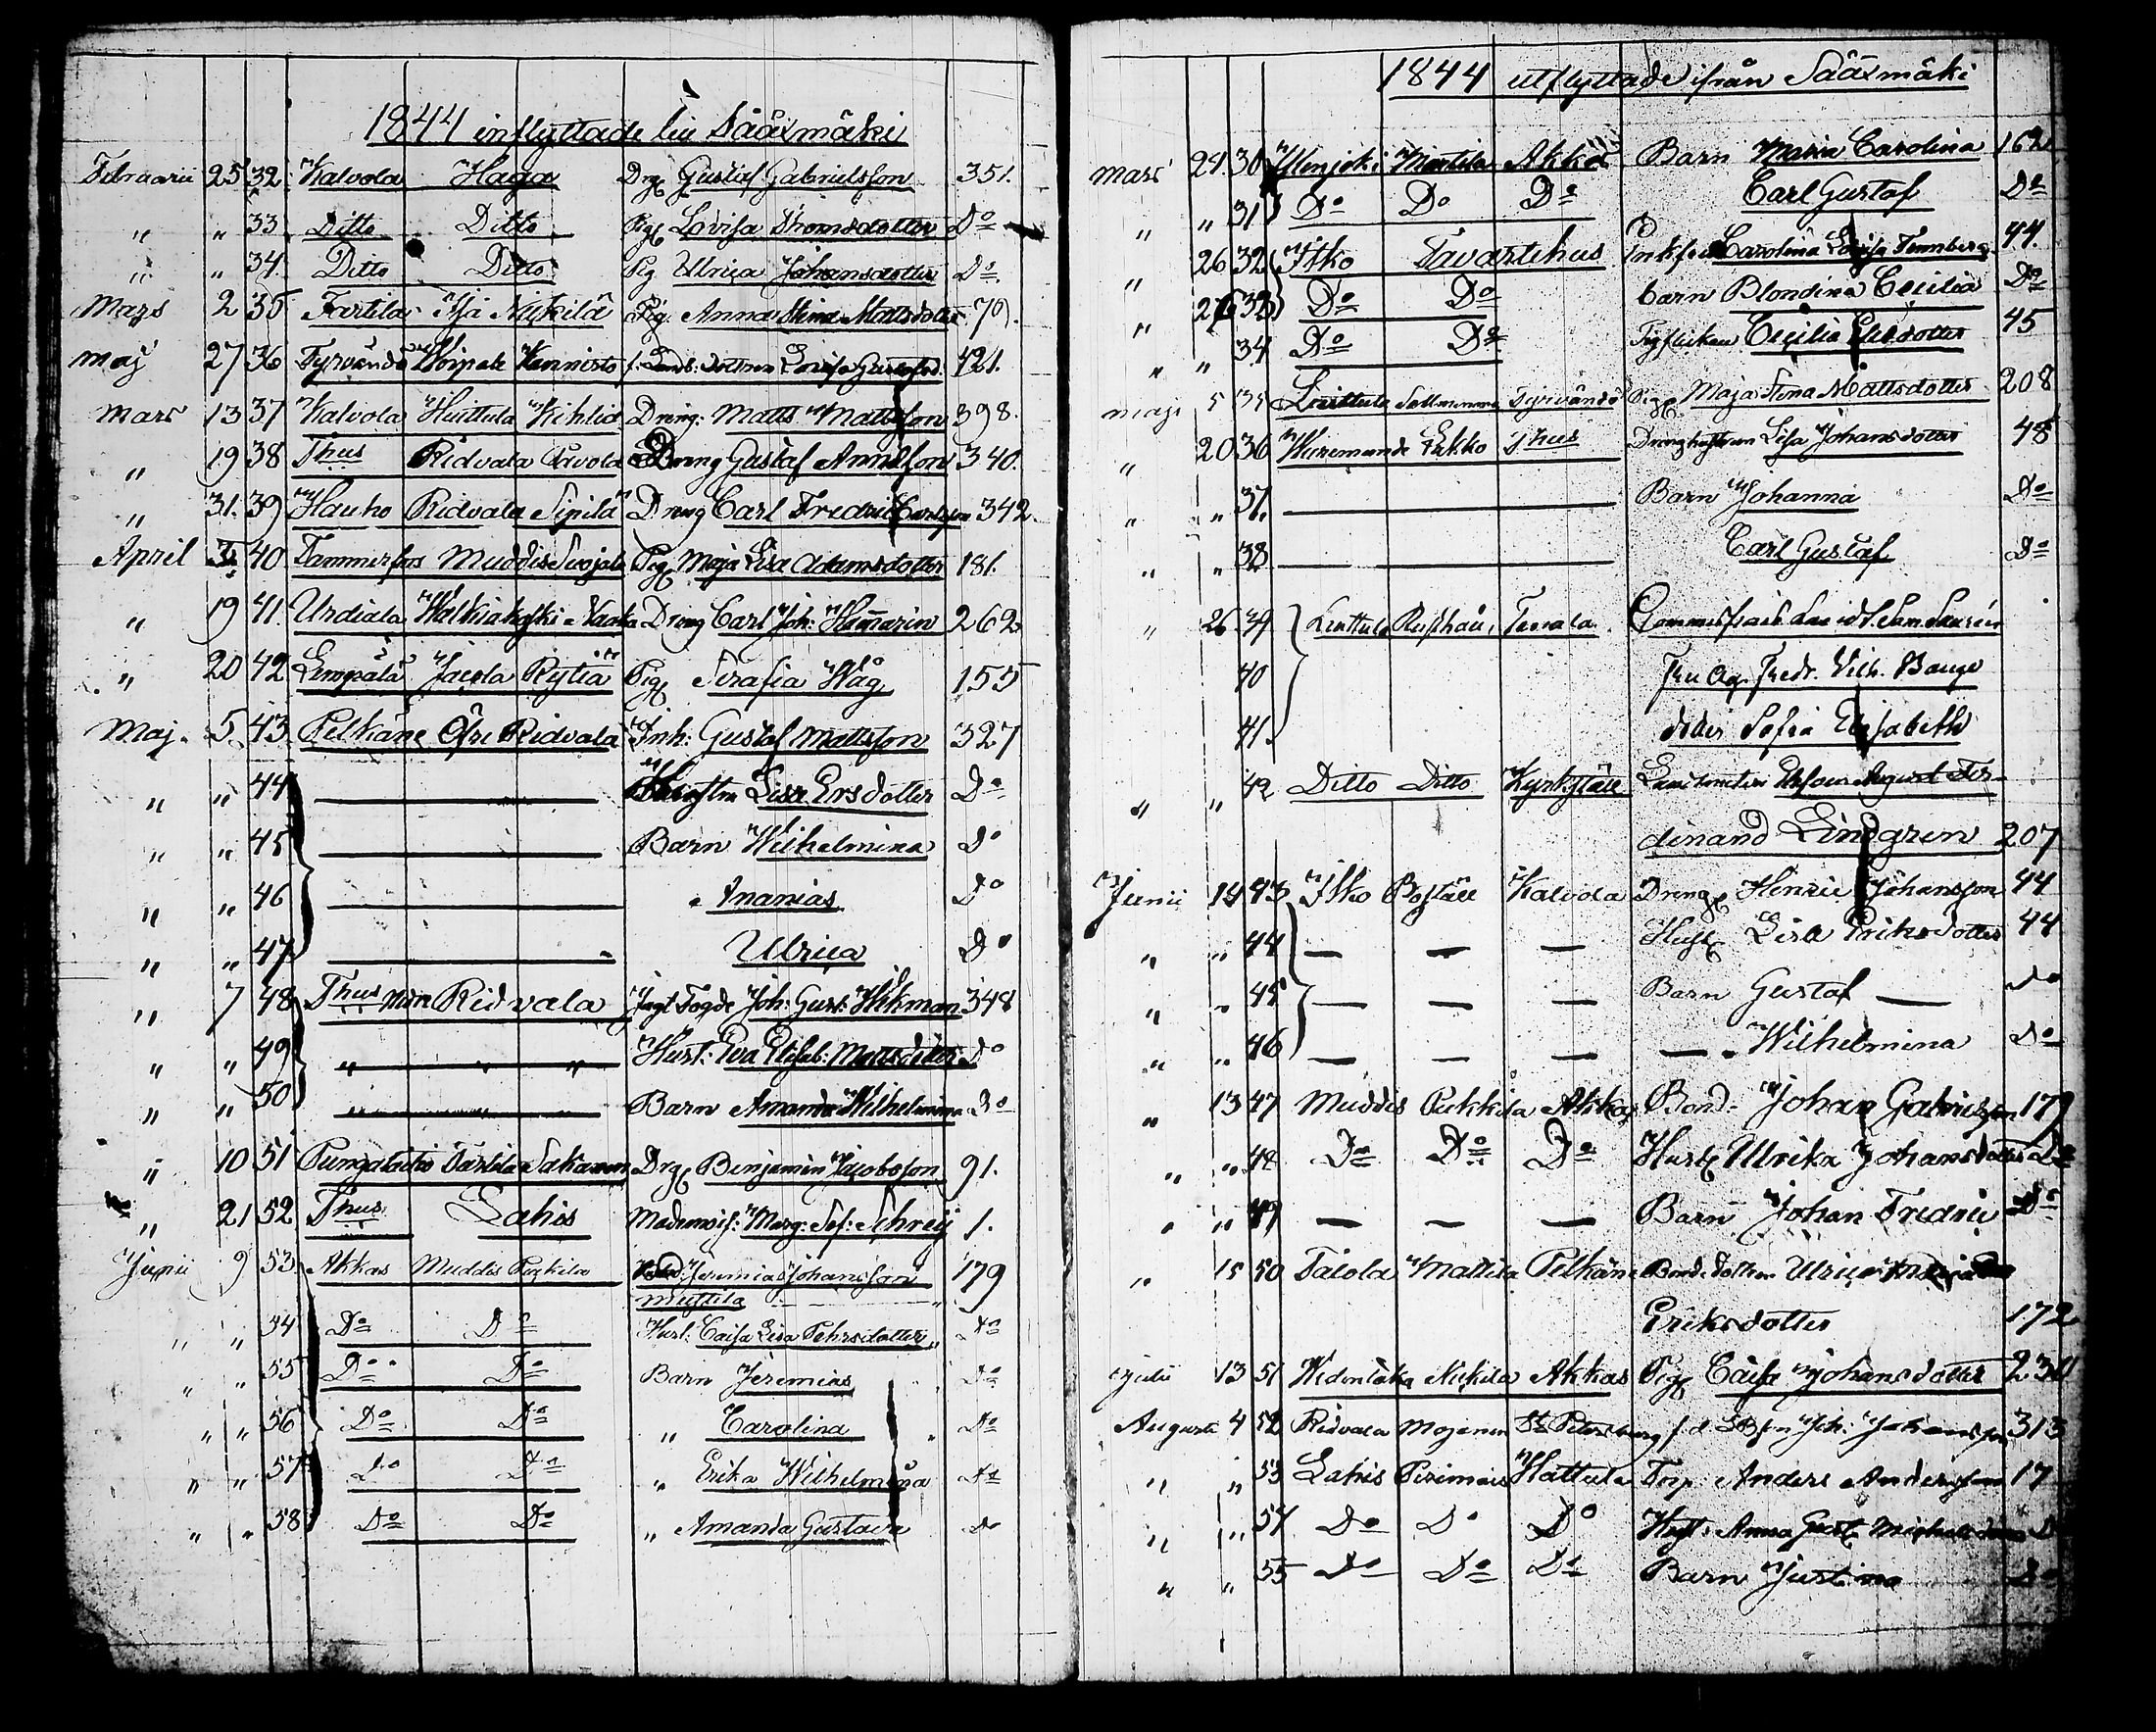 1844 inflyttade till Sääxmäki
Februarii 25 32. Kalvola Haga Drg Gustaf Gabrielsson 351.
" " 33 Ditto Ditto Pig Lovisa Thomsdotter Do
" " 34. Ditto Ditto Pig Ulrica Johansdotter Do
Mars 2 35 Tarttila Nickilä Pig. Anna Stina Mattsdotter 70.
maj 27 36 Tyrvändö Woipala Kannisto Lovisa 421.
Mars 13 37 Kalvola Huittula Dräng: Matts Mattsson 398.
" 19 38 Thus Ridvala Dreng Gustaf Antilson 340.
" 31. 39 Hauho Ridvala Sipilä Dreng Carl Fredric Carlsson 342.
April 40 Tammerfors Muddis Pig Maja Lisa Adamsdotter 181.
" 19 41. Urdiala Walkiakoski Dreng Carl Joh: 262
" 20 42 Lempälä Jacola Rytiä Pig Serafia Wåg 155
Maj. 5 43 Pelkäne Öfre Ridvala Inh: Gustaf Mattsson 327
" " 44 Hustrn Lisa Ersdotter Do
" " 45 Barn Wilhelmina Do
" " 46 Ananias Do
" " 47 Ulrica Do
" 7 48 Thus Nedre Ridvala Jagt Fogde Joh: Gust: Wikman 348
" " 49 " " " Hust: Eva Elisab: Mattsdotter Do
" " 50 " Barn Amanda Wilhelmina Do
" 10 51 Pungalaitio Tarttila Sakanen Drg Benjamin Jacobsson 91.
" 21 52 Thus Lahis Mademois: Marg: Sof: Schreij 1.
Junii 9 53. Akkas Muddis Jeremias Johansson 179
Muttila
" " 54 Do Do Hust: Caisa Lisa Pehrsdotter Do
" " 55 Do Do Barn Jeremias Do
" " 56 Do Do " Carolina Do
" " 57 Do Do " Erika Wilhelmina Do
" " 58 Do Do " Amanda Gustava Do
1844 utflyttade ifrån Sääxmäki
Mars 24. 30 Akkas Barn Maria Carolina 162
" " 31 Do Do Do Carl Gustaf Do
" 26 32 Itko Tavastehus Carolina Lovisa 44.
" 26 33 Do Do barn Blondina Cecilia Do
" " 34 Do Do Pigflickan Cecilia 45
maji 5 35 Tyrvändö Pig Maja Stina Mattsdotter 208
" 20 36 Thus Lisa Johansdotter 48
" " 37. Barn Johanna Do
" " 38 Carl Gustaf Do
" 26 39 Linttula
40 Fru Aug. Fredr. Wilh. Bange
41. dotter Sofia Elisabeth
" " 42 Ditto Ditto Kyrkslätt August Fer-
dinand Lindgren 207
Junii 14 43 Itko Boställ Kalvola Dreng Henric Johansson 44
" " 44 — — — Hust Lisa Eriksdotter 44
" " 45 — — — Barn Gustaf — Do
" " 46 — — — — Wilhelmina Do
" 13 47 Muddis Pukkila Akkas Bond: Johan Gabrielsson 179
" " 48 Do Do Do Hust Ulrika Johansdotter Do
" " 49 — — — Barn Johan Fredric Do
" 15 50 Taiola Mattila Pelkäne Bondedottern Ulrica
Eriksdotter 172
Julii 13 51 Akkas Pig Caisa Johansdotter 230
Augusti 4 52 Ridvala St Petersburg Joh: Johansson 313
" " 53 Lahis Hattula Torp: Anders Andersson 17
" " 54 Do Do Do Hust: Anna Do
" " 55 Do Do Do Barn Justina Do